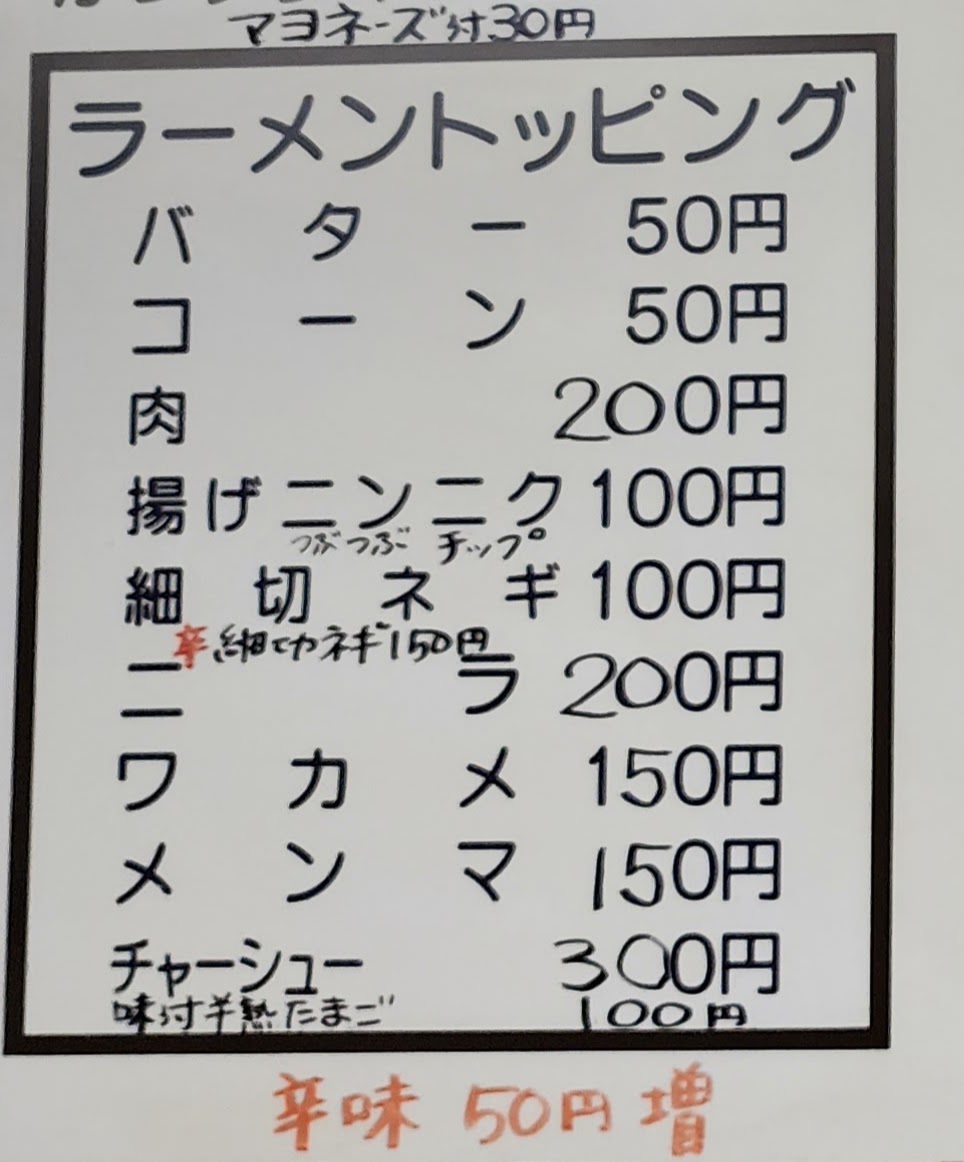 マヨネーズ付30円
ラーメントッピング
バター 50円
コーン 50円
肉 200円
揚げニンニク 100円
つぶつぶ チップ
細切ネギ 100円
辛細切ネギ150円
ニラ 200円
ワカメ 150円
メンマ 150円
チャーシュー 300円
味付半熟たまご 100円
辛味 50円増